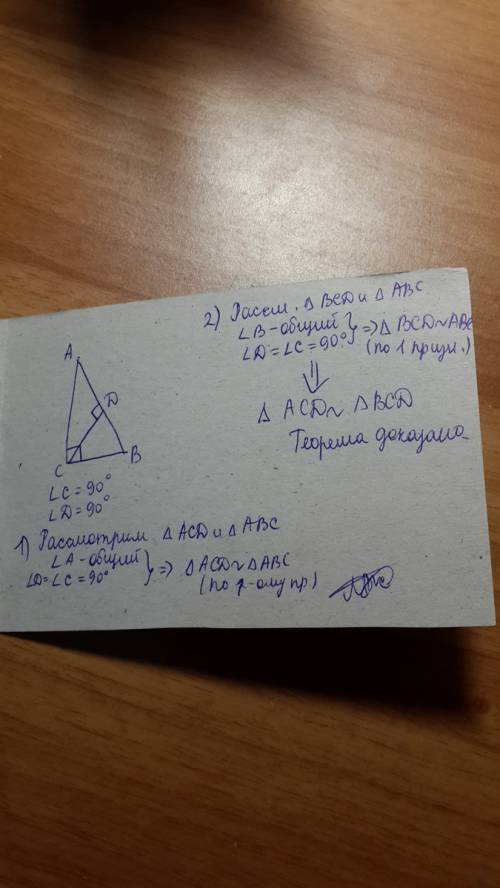 A
D
C
B
∠C = 90°
∠D = 90°
1) Рассмотрим △ACD и △ABC
∠A - общий
∠D = ∠C = 90° } => △ACD ~ △ABC
(по 1-ому пр)
2) Рассм. △BCD и △ABC
∠B - общий
∠D = ∠C = 90° } => △BCD ~ ABC
(по 1 призн.)
⇓
△ACD ~ △BCD
Теорема доказана